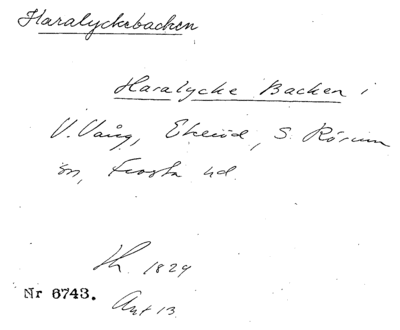 Haralyckebacken
Haralycke Backen i
V. Vång, Ekeröd, S. Rörum
sn, Frosta hd.
Lh. 1829
Nr 6743.
Avt 13.